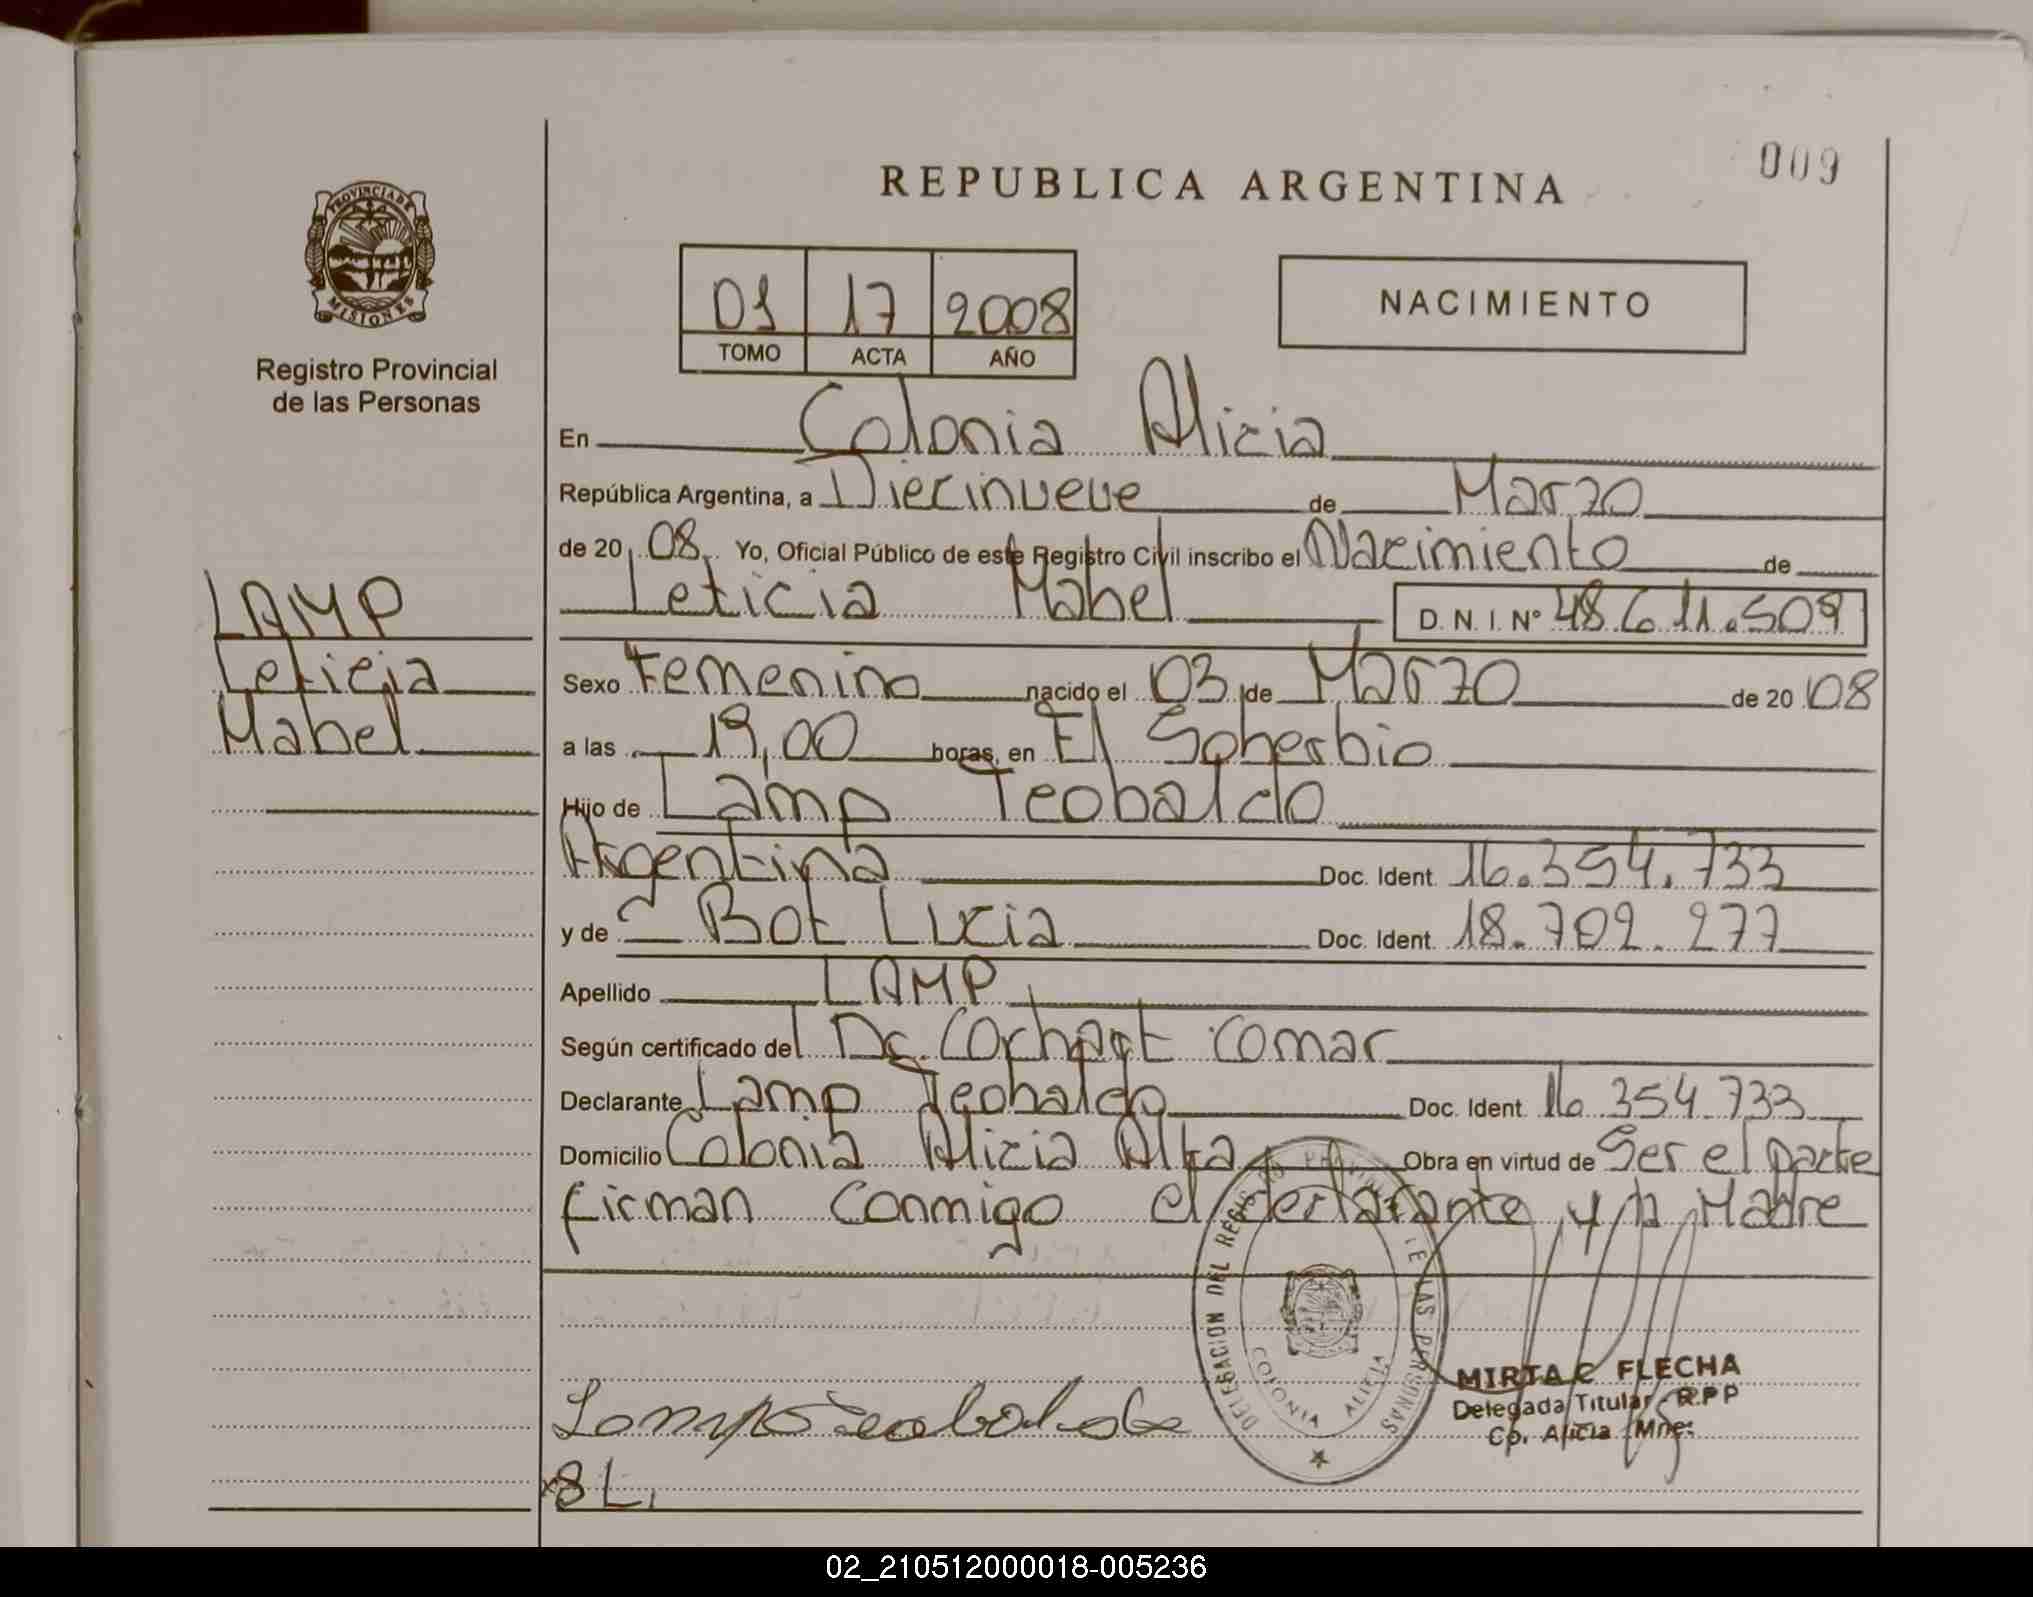 REPUBLICA ARGENTINA
009
PROVINCIA DE
MISIONES
Registro Provincial
de las Personas
01 17 2008
TOMO ACTA AÑO
NACIMIENTO
En Colonia Alicia
República Argentina, a Diecinueve de Marzo
de 20 08 Yo, Oficial Público de este Registro Civil inscribo el Nacimiento de
Leticia Mabel D. N. I. Nº 48.611.509
LAMP
Leticia
Mabel
Sexo Femenino nacido el 03 de Marzo de 20 08
a las 19,00 horas, en El Soberbio
Hijo de Lamp Teobaldo
Argentina Doc. Ident. 16.354.733
y de Bot Lucia Doc. Ident. 18.702.277
Apellido LAMP
Según certificado del Dr. Comar
Declarante Lamp Teobaldo Doc. Ident 16 354 733
Domicilio Colonia Alicia Alta Obra en virtud de Ser el padre
firman conmigo el declarante y la Madre
DELEGACION DEL REGISTRO PROVINCIAL DE LAS PERSONAS
COLONIA ALICIA
MIRTA C. FLECHA
Delegada Titular R.P.P
Co. Alicia Mnes
Lamp Teobaldo
B L.
02_210512000018-005236